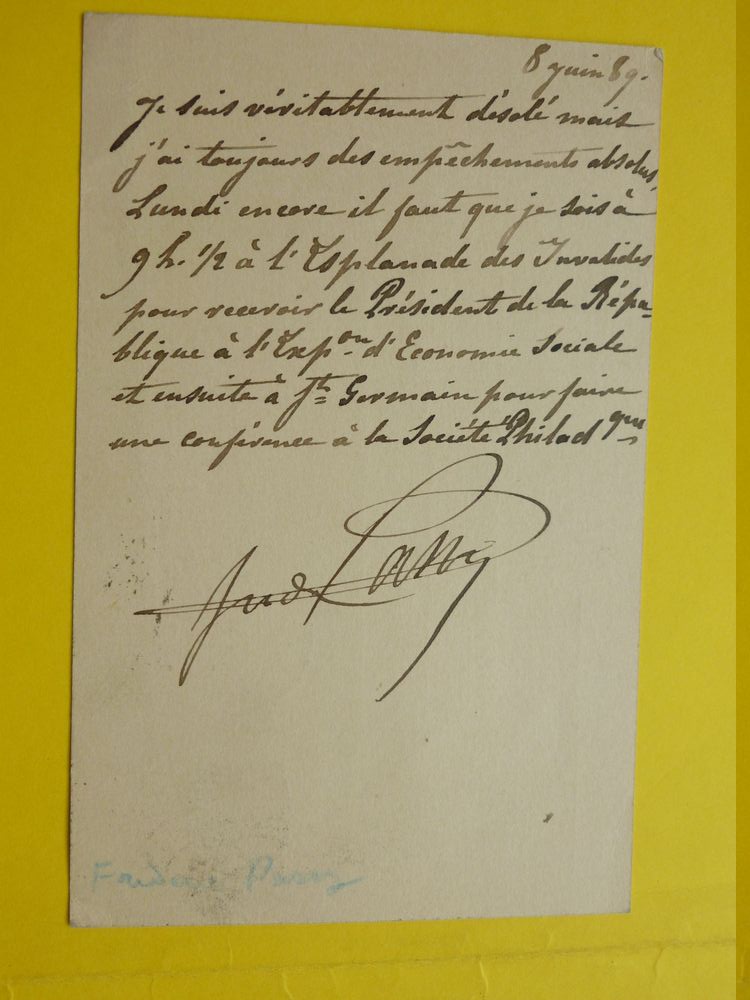 8 juin 89.
Je suis véritablement désolé mais
j'ai toujours des empêchements absolus,
Lundi encore il faut que je sois à
9 h. 1/2 à l'Esplanade des Invalides
pour recevoir le Président de la Répu-
blique à l'Expon d'Economie Sociale
et ensuite à St Germain pour faire
une conférence à la Société Philad
Fred Passy
Frédéric Passy